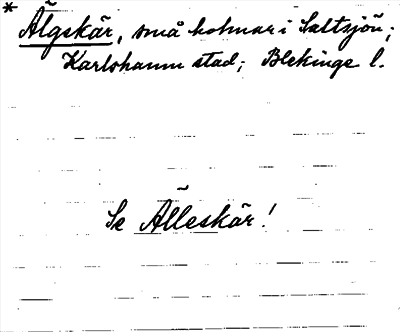 * Älgskär, små holmar i Saltsjön;
Karlshamn stad; Blekinge l.
Se Älleskär!